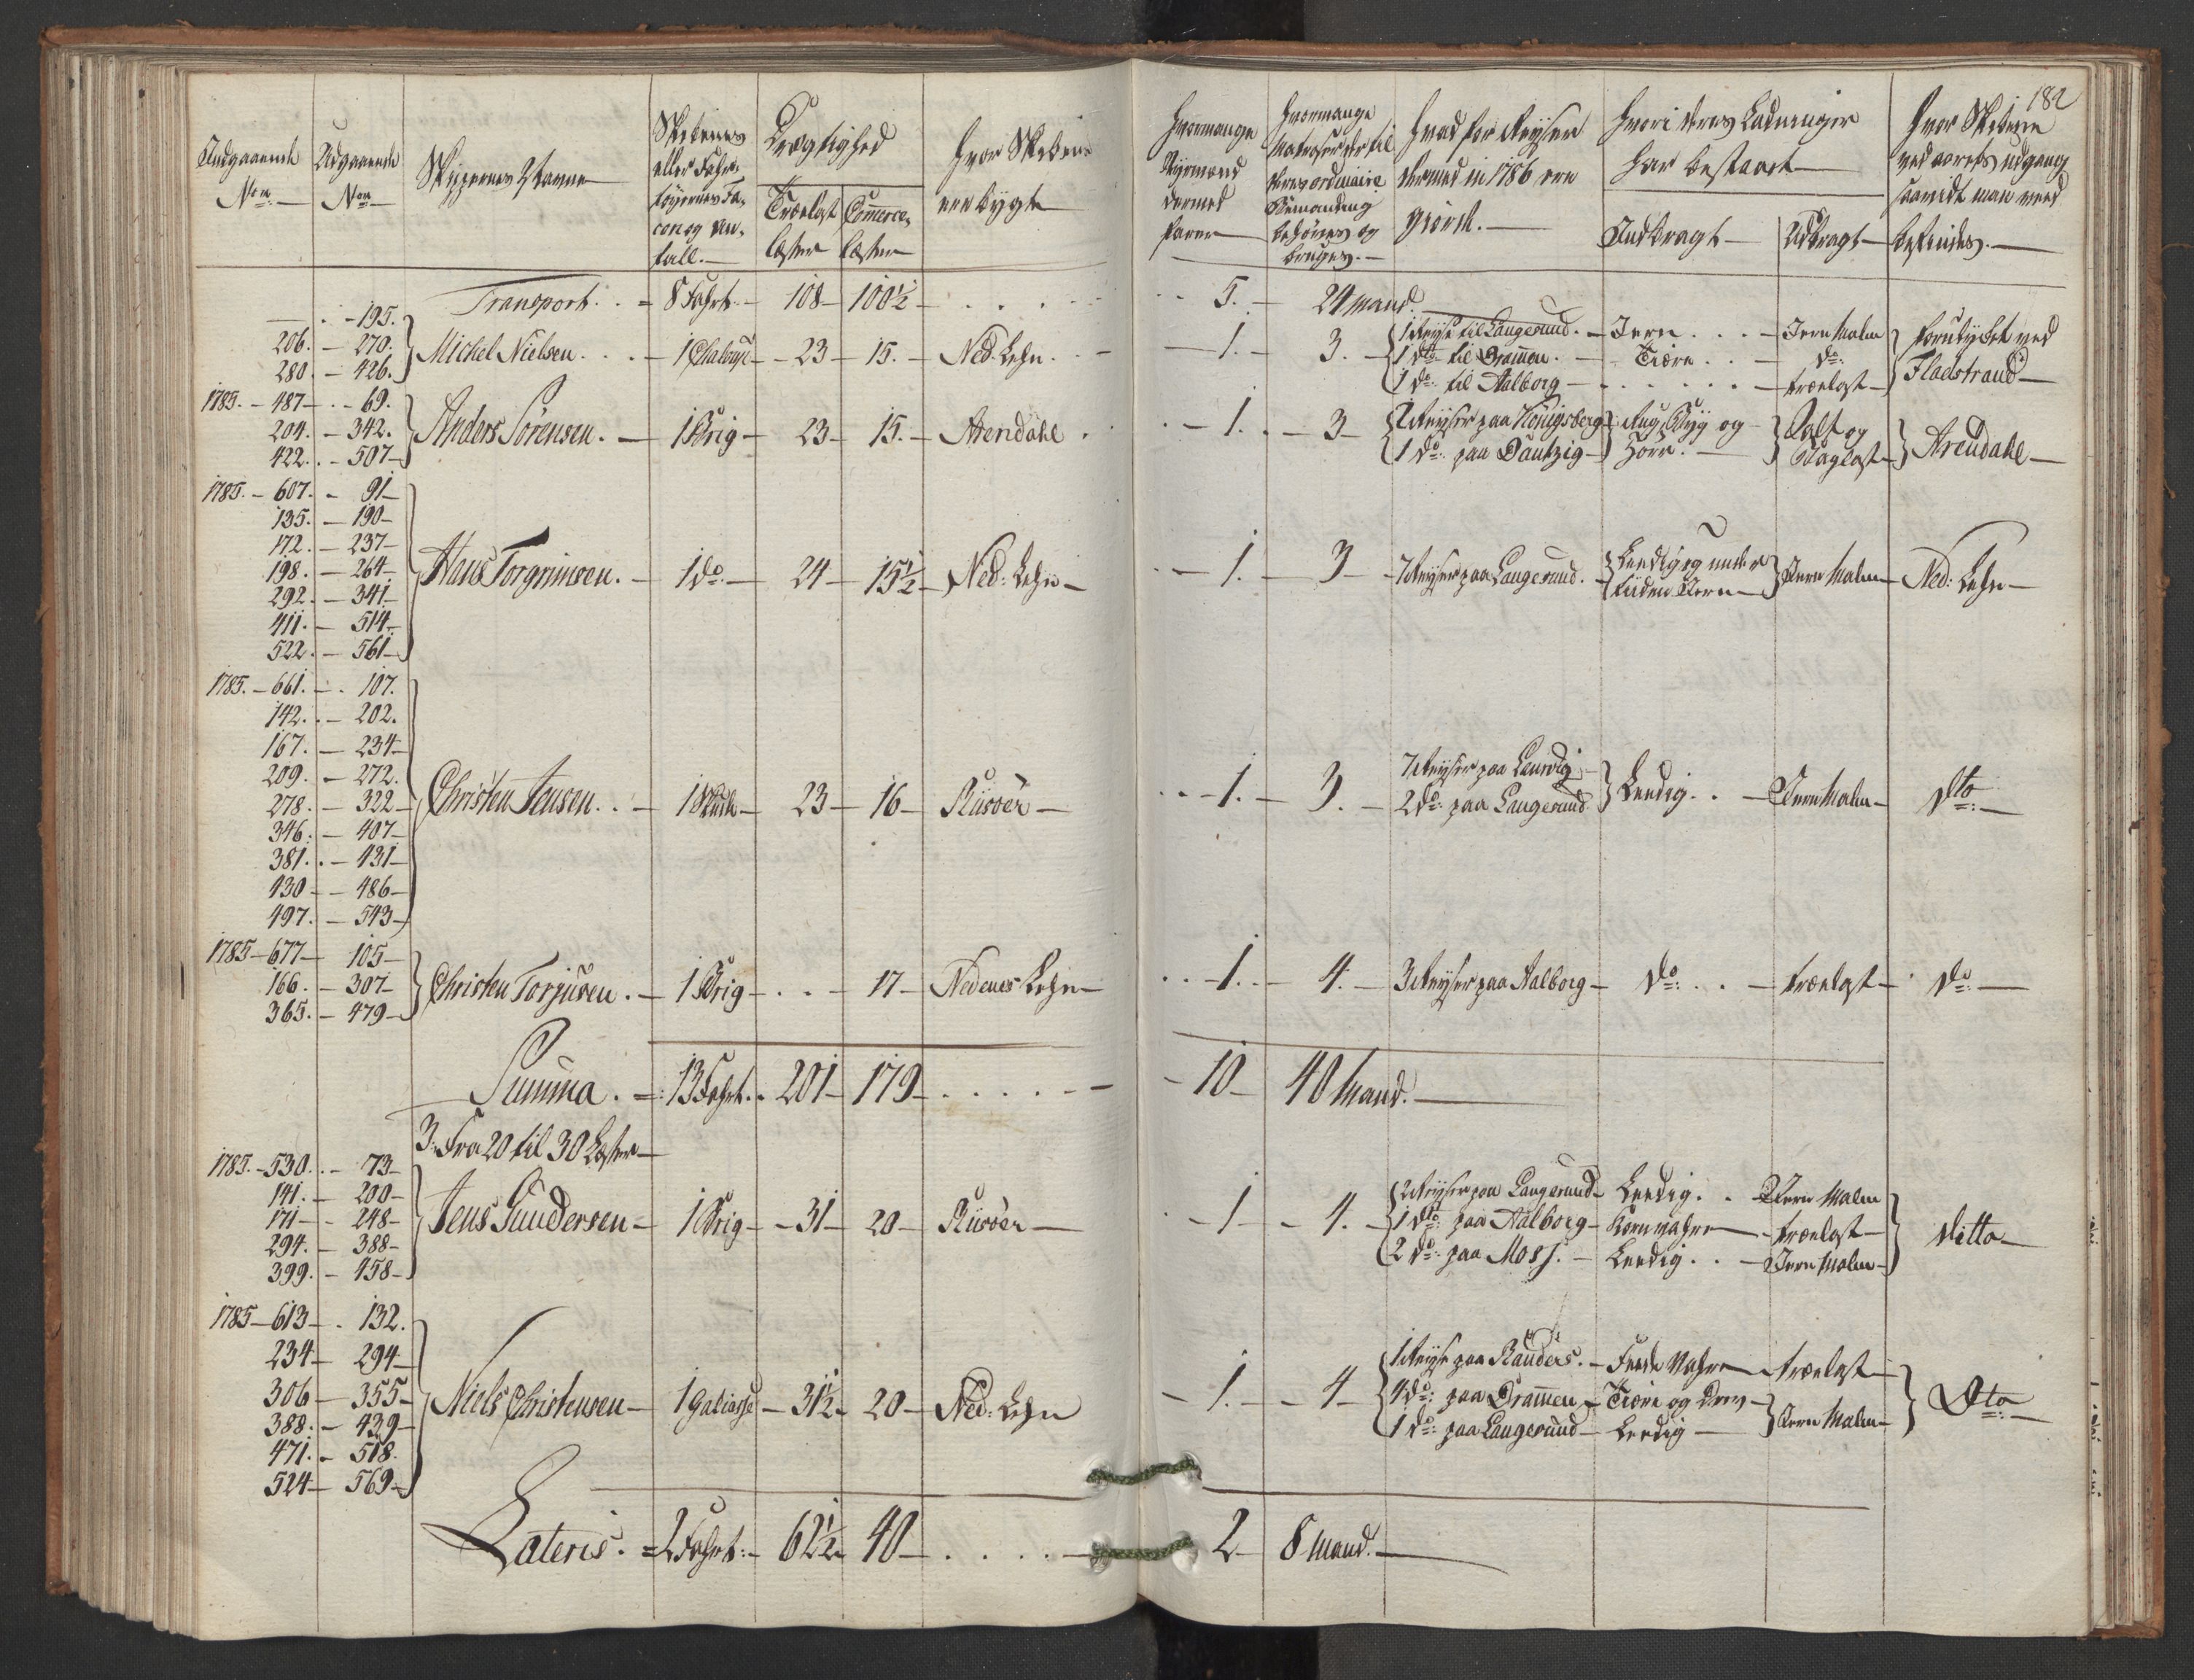 182
Indgaaende Nor.
Udgaaende Nor
Skippernes Navne
Skibenes eller Fahrtöyernes Facon og Antall.
Drægtighed
Trælast læster
Commerce læster
Hvor Skibene ere bygte
Hvormange Styrmænd dermed farer
Hvormange Matroser der til deres ordinaire Bemanding behöves og bruges.
Hvad for Reyser dermed in 1786 ere giorde.
Hvori deres Ladninger har bestaaet
Indbragt
Udbragt
Hvor Skibene ved aarets udgang saavidt man veed befindes.
Transport . . = 8 Fahrt. - 108 - 100½ - . . . . - - 5. - 24 Mand.
— . - 195.
206. - 270.
280. - 426.
Michel Nielsen . . . - 1 Chaloup - 23 - 15. - Ned. Lehn . -
1. 3. 1 Reyse til Langesund. - Jern . . . - Jern Malm
1 do til Drammen. - Tiære . . - do
1 do: til Aalborg - . . . . . - trælast
forulyket ved Fladstrand
1785. - 487 - . - 69.
204. - 342.
422. . - 507
Anders Sörensen. - 1 Brig - 23 - 15. - Arendahl .
1. - 3 - 2 Reyser paa Königsberg
1 do: paa Dantzig
Rug, Byg og Hör.
Salt og Baglast
Arendahl
1785. - 607. - 91
135. - 190
172. - 237
198. - 264
292. - 341
411. - 514
522. - 561
Hans Torgrimsen. - 1 do. - 24 - 15½ - Ned: Lehn
1. - 3 - 7 Reyser paa Langesund.
Leedig og under tiiden Jern
Jern Malm - Ned: Lehn
1785. - 661. - . 107.
142. . - 202.
167. - 234
209. - 272.
278. - 322
346. - 407
381. . - 431
430 - - 486
497. - 543
Christen Jensen. . - 1 - 23 - 16 - Riisöer
1. - 3. - 7 Reyser paa Laurvig
2 do: paa Langesund
Leedig. . - Jern Malm - dto:
1785 - 677 - 105
166. - 307
365. - 479
Christen Torjusen . - 1 Brig - . . - 17 - Nedenes Lehn
1. - 4. - 3 Reyser paa Aalborg - do: . . - trælast - do:
Summa . = 13 Fahrt. . 201 - 179 - . . . . - - 10 - 40 Mand.
3. Fra 20 til 30 Læster
1785. - 530. . - 73
141. - 200
171 - - 248
294. - 388
399. - 458
Jens Gundersen - 1 Brig - - 31 - 20 - Riisöer
1 - - 4. - 2 Reyser paa Langesund - Leedig. . Jern Malm
1 do: paa Aalborg - Kornvahre - trælast
2 do: paa Moss. - Leedig. . - Jern Malm
ditto
1785 - 613 - . 132.
234 - 294
306 - 355
388: - 439
471. - 518.
524 - 569
Niels Christensen - 1 Galiasse - 31½ - 20 - Ned: Lehn
1. - - 4 - 1 Reyse paa Randers. - Feede Vahre - trælast
4 do: paa Drammen - Tiære og
1 do: paa Langesund - Leedig
Jern Malm
Dto:
Lateris. = 2 Fahrt: - 62½ - 40 - . . . . - 2 - 8 Mand.